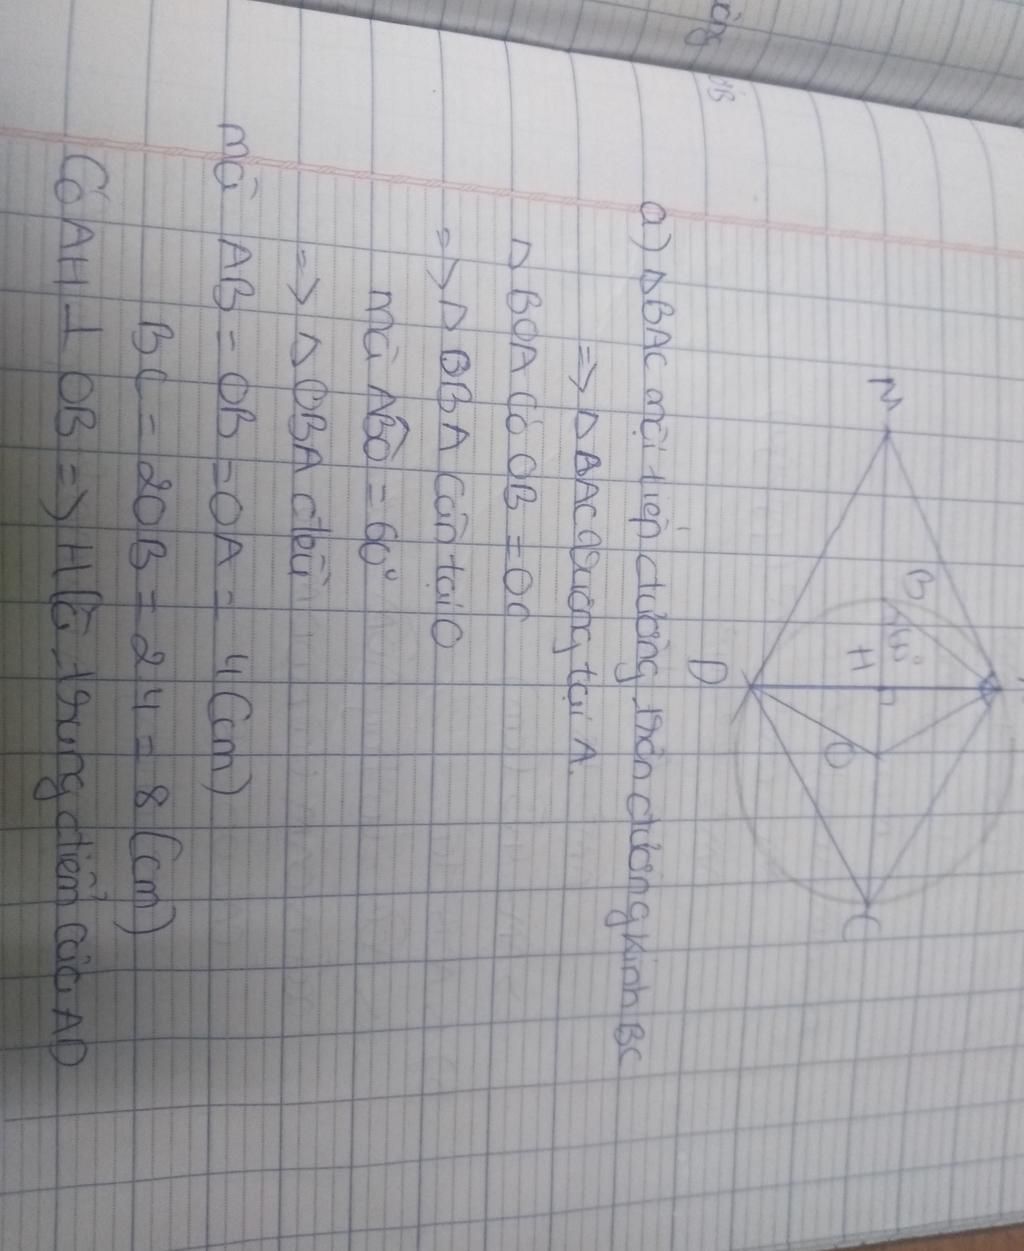 M
B
60°
H
O
C
D
a) ΔBAC nội tiếp đường tròn đường kính BC
=> ΔBAC vuông tại A.
Δ BOA có OB = OC
=> Δ BBA cân tại O
mà ABO = 60°
=> Δ OBA đều
mà AB = OB = OA = 4 (cm)
BC = 2OB = 2.4 = 8 (cm)
Có AH ⊥ OB => H là trung điểm của AD